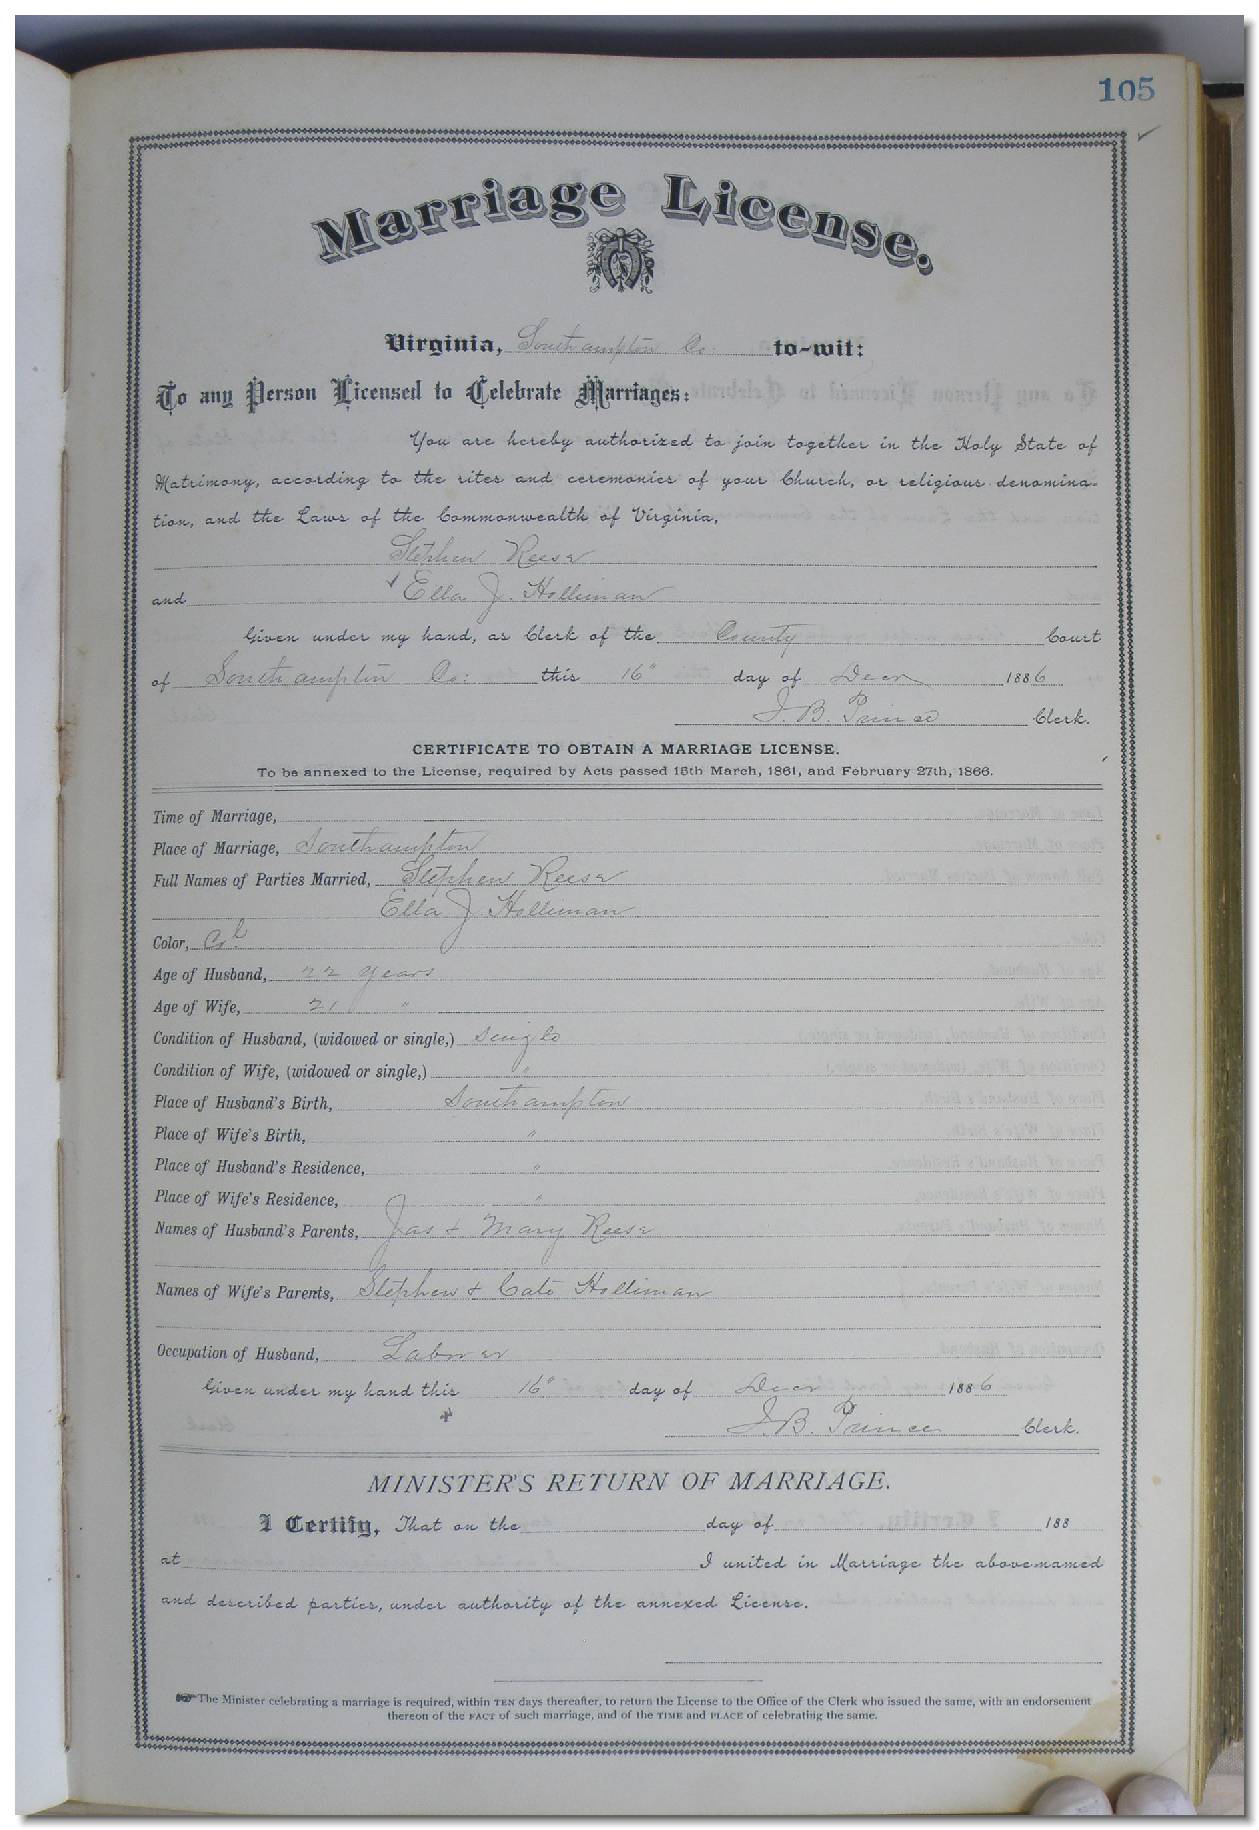 105
Marriage License.
Virginia, Southampton Co. to-wit:
To any Person Licensed to Celebrate Marriages:
You are hereby authorized to join together in the Holy State of
Matrimony, according to the rites and ceremonies of your Church, or religious denomina-
tion, and the Laws of the Commonwealth of Virginia,
Stephen Reese
and Ella J. Holliman
Given under my hand, as Clerk of the County Court
of Southampton Co: this 16" day of Decr 1886
J. B. Prince Clerk.
CERTIFICATE TO OBTAIN A MARRIAGE LICENSE.
To be annexed to the License, required by Acts passed 15th March, 1861, and February 27th, 1866.
Time of Marriage,
Place of Marriage, Southampton
Full Names of Parties Married, Stephen Reese
Ella J Holliman
Color, Col
Age of Husband, 22 years
Age of Wife, 21 "
Condition of Husband, (widowed or single,) Single
Condition of Wife, (widowed or single,) "
Place of Husband's Birth, Southampton
Place of Wife's Birth, "
Place of Husband's Residence, "
Place of Wife's Residence, "
Names of Husband's Parents, Jas + Mary Reese
Names of Wife's Parents, Stephen + Cate Holliman
Occupation of Husband, Laborer
Given under my hand this 16" day of Decr 1886
J. B. Prince Clerk.
MINISTER'S RETURN OF MARRIAGE.
I Certify, That on the day of 188
at I united in Marriage the above-named
and described parties, under authority of the annexed License.
☞ The Minister celebrating a marriage is required, within TEN days thereafter, to return the License to the Office of the Clerk who issued the same, with an endorsement
thereon of the FACT of such marriage, and of the TIME and PLACE of celebrating the same.